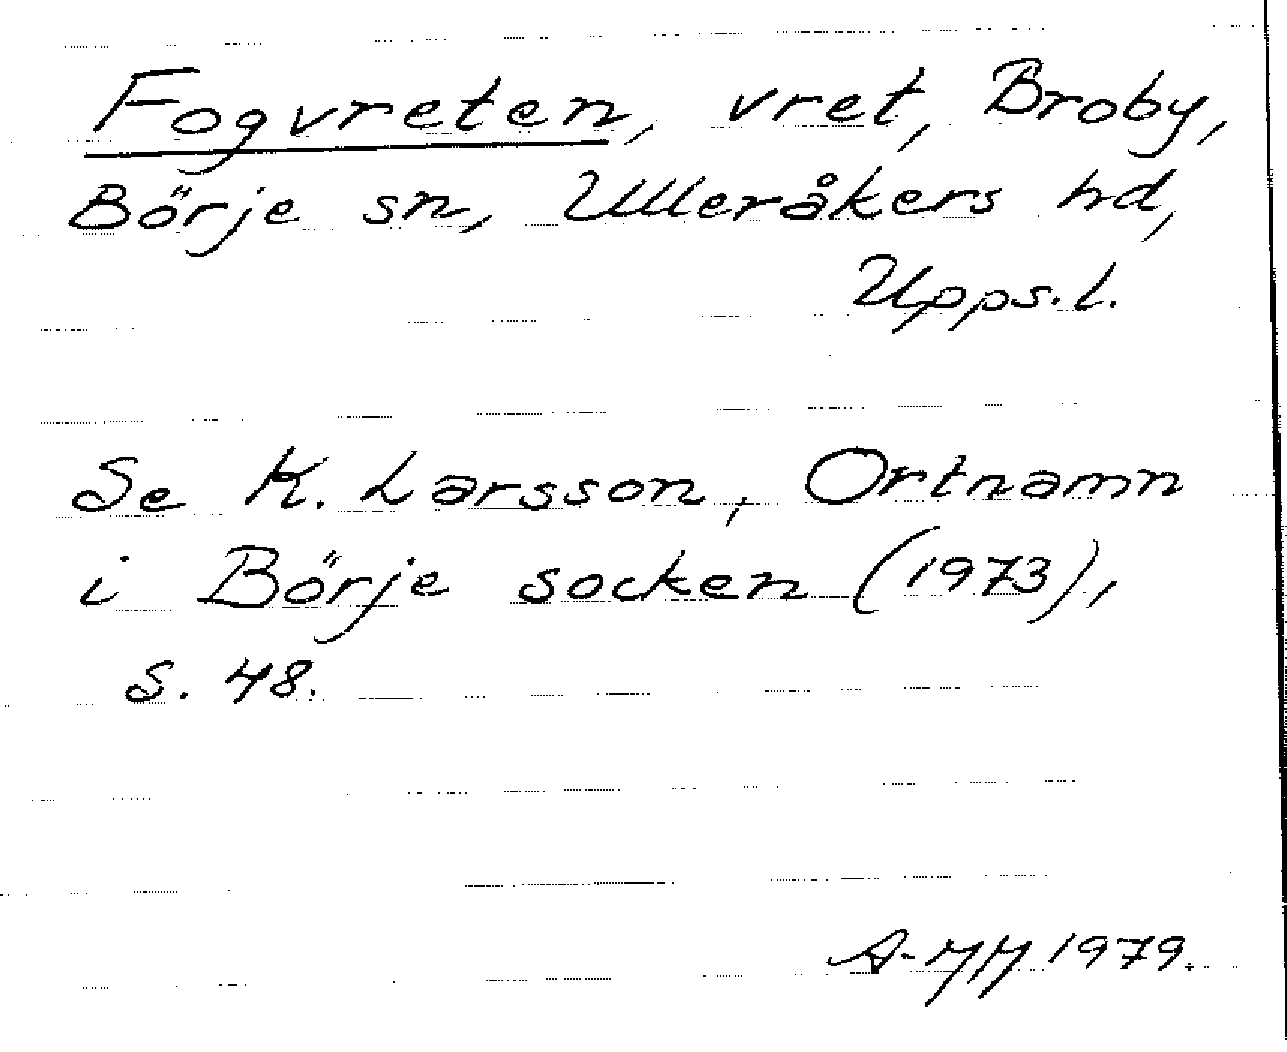 Fogvreten, vret, Broby,
Börje sn, Ulleråkers hd,
Upps.l.
Se K. Larsson, Ortnamn
i Börje socken (1973),
s. 48.
1979.